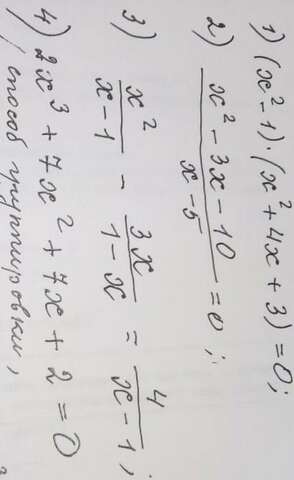 1) (x² - 1) · (x² + 4x + 3) = 0;
2) (x² - 3x - 10)/(x - 5) = 0;
3) x²/(x - 1) - 3x/(1 - x) = 4/(x - 1);
4) 2x³ + 7x² + 7x + 2 = 0
способ группировки,